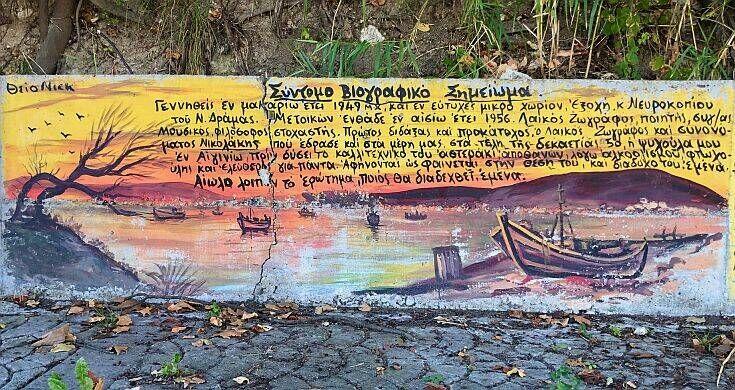 Θείο Νίεκ
Σύντομο Βιογραφικό Σημείωμα
Γεννηθείς έν μακαρίω έτει 1949 μ.χ, καί έν εύτυχές μικρό χωρίον, Έξοχή κ Νευροκοπίου
τού Ν. Δράμας. Μετοικών ένθάδε έν αισίω έτει 1956. Λαικός Ζωγράφος, ποιητής, συγ/ας
Μουσικός, φιλόσοφος στοχαστής. Πρώτος διδάξας καί προκάτοχος, ο Λαικός Ζωγράφος καί συνονό-
ματος Νικολάκης πού έδρασε καί στά μέρη μας, στά τέλη της δεκαετίας 50 ή ψυχούλα μου
έν Αιγινίω, πρίν δύσει τό καλλιτεχνικό του άστεράκι, άποθανών, λόγω άλκοολισμού, φτωχού-
λης καί έλεύθερος γιά πάντα. Αφήνοντας ώς φαίνεται στήν θέση του, καί διάδοχό του: έμένα.
λοιπόν τό έρώτημα, ποιός θά διαδεχθεί: έμένα.